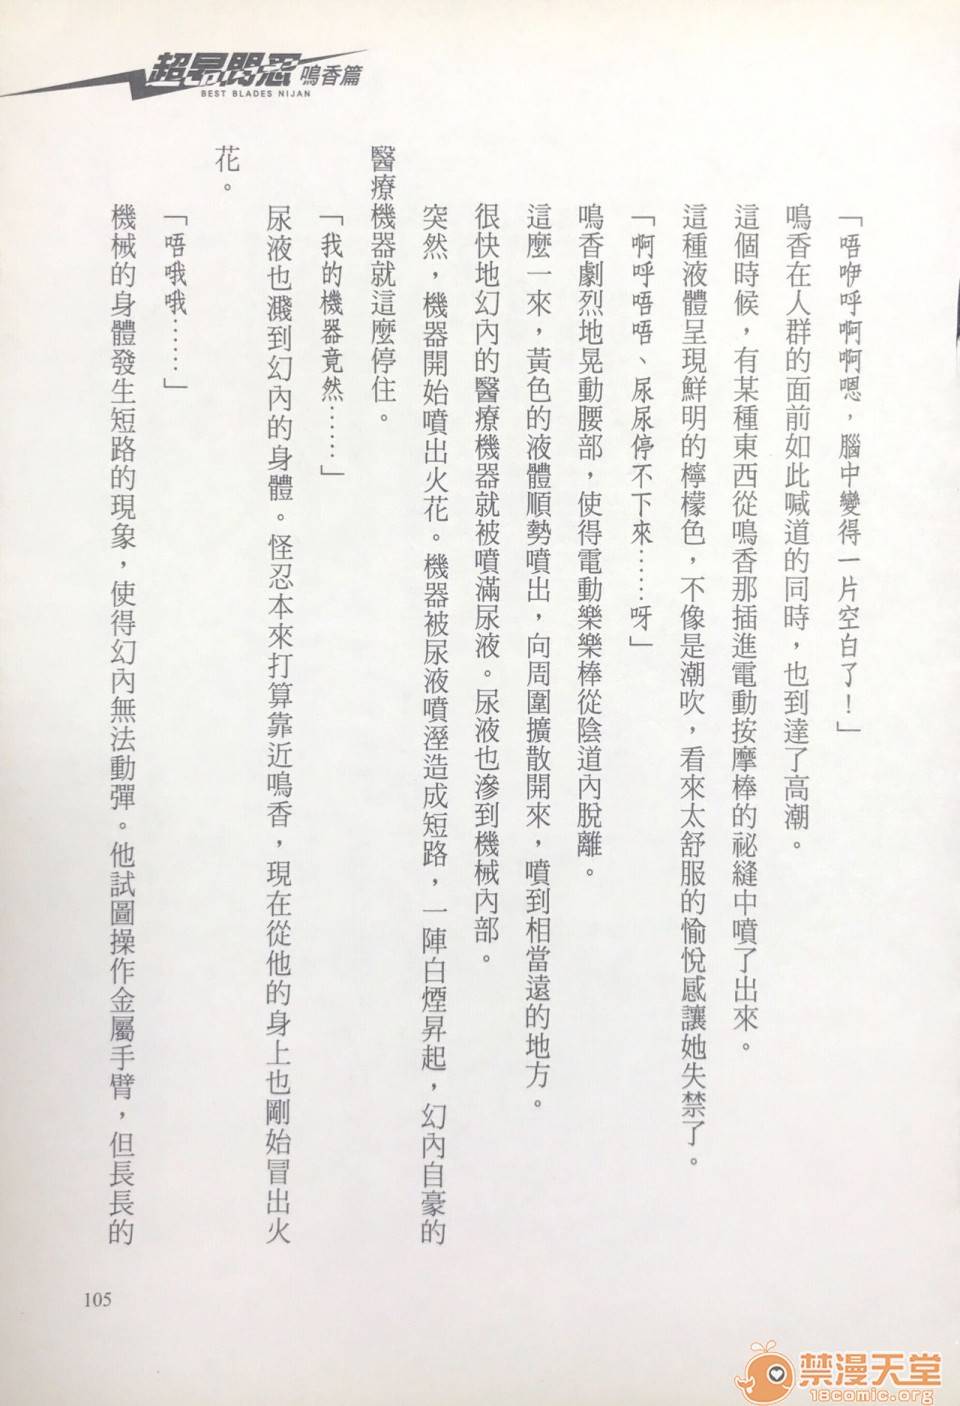 超昂閃忍 鳴香篇
BEST BLADES NIJAN
「唔咿呼啊啊嗯，腦中變得一片空白了！」
鳴香在人群的面前如此喊道的同時，也到達了高潮。
這個時候，有某種東西從鳴香那插進電動按摩棒的祕縫中噴了出來。
這種液體呈現鮮明的檸檬色，不像是潮吹，看來太舒服的愉悅感讓她失禁了。
「啊呼唔唔、尿尿停不下來……呀」
鳴香劇烈地晃動腰部，使得電動樂樂棒從陰道內脫離。
這麼一來，黃色的液體順勢噴出，向周圍擴散開來，噴到相當遠的地方。
很快地幻內的醫療機器就被噴滿尿液。尿液也滲到機械內部。
突然，機器開始噴出火花。機器被尿液噴溼造成短路，一陣白煙昇起，幻內自豪的
醫療機器就這麼停住。
「我的機器竟然……」
尿液也濺到幻內的身體。怪忍本來打算靠近鳴香，現在從他的身上也剛始冒出火
花。
「唔哦哦……」
機械的身體發生短路的現象，使得幻內無法動彈。他試圖操作金屬手臂，但長長的
105
禁漫天堂
18comic.org